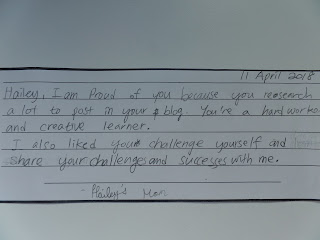 11 April 2018
Hailey, I am Proud of you because you research
a lot to post in your blog. You're a hard worke
and creative learner.
I also liked your challenge yourself and
share your challenges and successes with me.
- Hailey's Mom